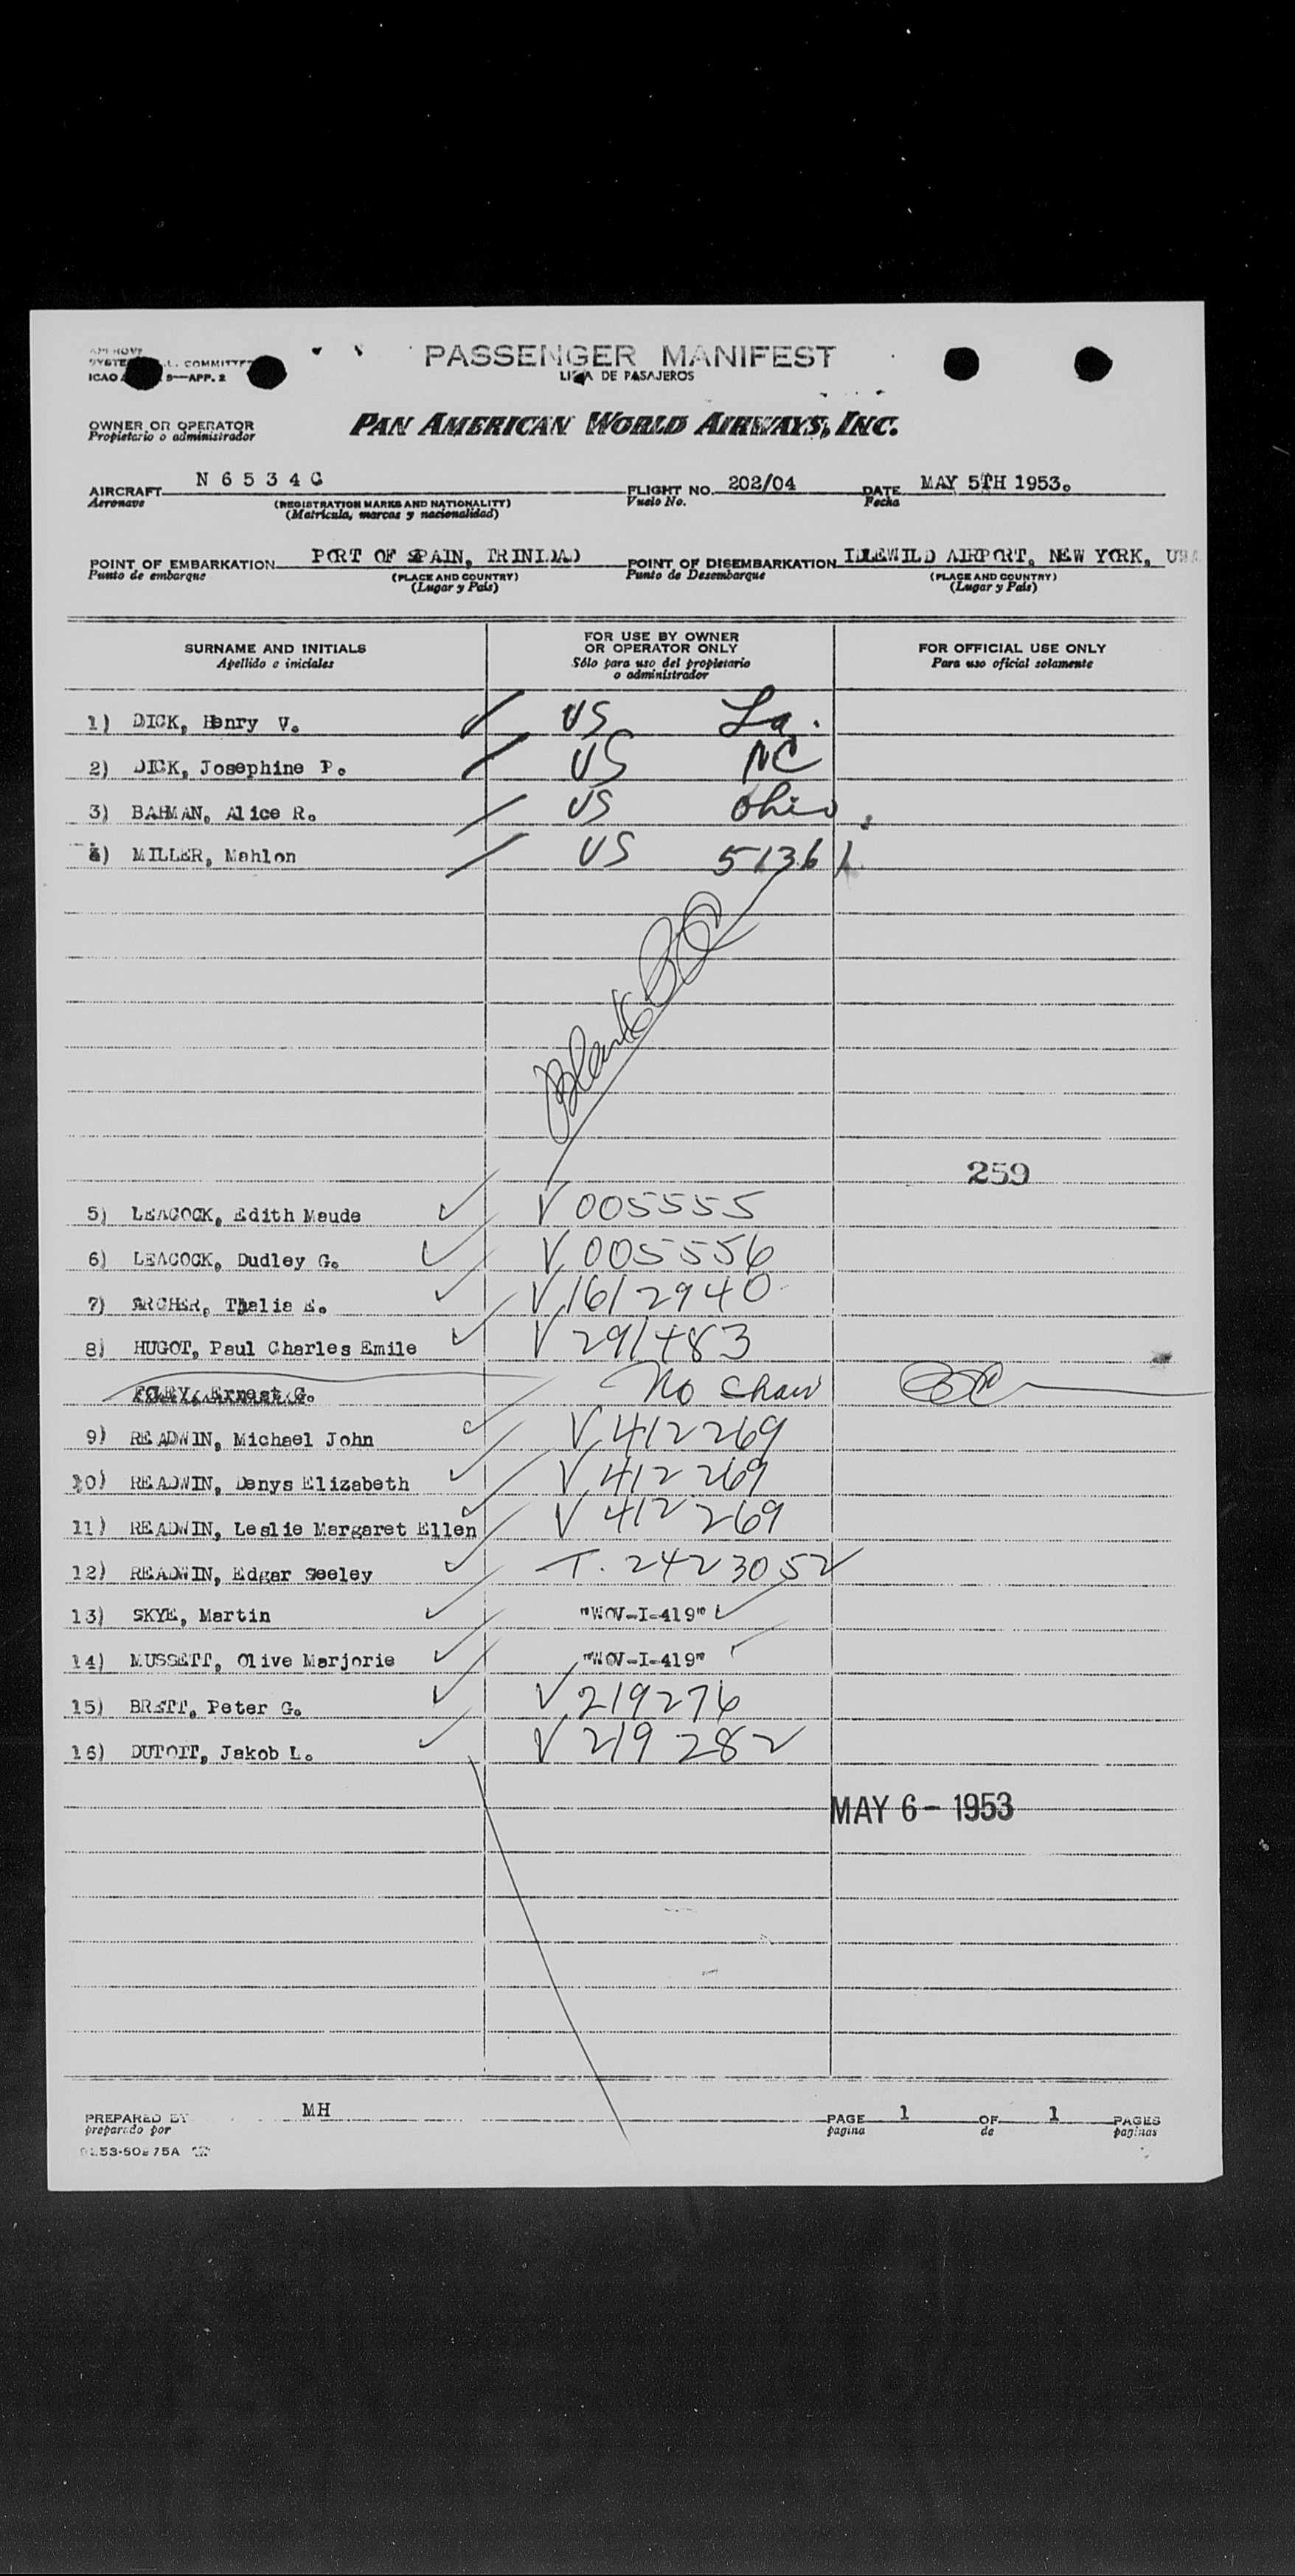 PASSENGER MANIFEST
LISTA DE PASAJEROS
COMMITTEE
ICAO 9—APP. 2
OWNER OR OPERATOR
Propietario o administrador
PAN AMERICAN WORLD AIRWAYS, INC.
AIRCRAFT N 6 5 3 4 C FLIGHT NO. 202/04 DATE MAY 5TH 1953.
Aeronave (REGISTRATION MARKS AND NATIONALITY) Vuelo No. Fecha
(Matrícula, marcas y nacionalidad)
POINT OF EMBARKATION PORT OF SPAIN, TRINIDAD POINT OF DISEMBARKATION IDLEWILD AIRPORT, NEW YORK, USA
Punto de embarque (PLACE AND COUNTRY) Punto de Desembarque (PLACE AND COUNTRY)
(Lugar y País) (Lugar y País)
SURNAME AND INITIALS FOR USE BY OWNER OR OPERATOR ONLY FOR OFFICIAL USE ONLY
Apellido e iniciales Sólo para uso del propietario o administrador Para uso oficial solamente
1) DICK, Henry V. US La.
2) DICK, Josephine P. US NC
3) BAHMAN, Alice R. US Ohio
4) MILLER, Mahlon US 5136
Blank
259
5) LEACOCK, Edith Maude V 005555
6) LEACOCK, Dudley G. V 005556
7) ARCHER, Thalia E. V 1612940
8) HUGOT, Paul Charles Emile V 291483
FOLEY, Ernest G. No
9) READWIN, Michael John V 412269
10) READWIN, Denys Elizabeth V 412269
11) READWIN, Leslie Margaret Ellen V 412269
12) READWIN, Edgar Seeley T. 2423052
13) SKYE, Martin "WOV-I-419"
14) MUSSETT, Olive Marjorie "WOV-I-419"
15) BRETT, Peter G. V 219276
16) DUTOIT, Jakob L. V 219282
MAY 6 - 1953
PREPARED BY MH PAGE 1 OF 1 PAGES
preparado por pagina de paginas